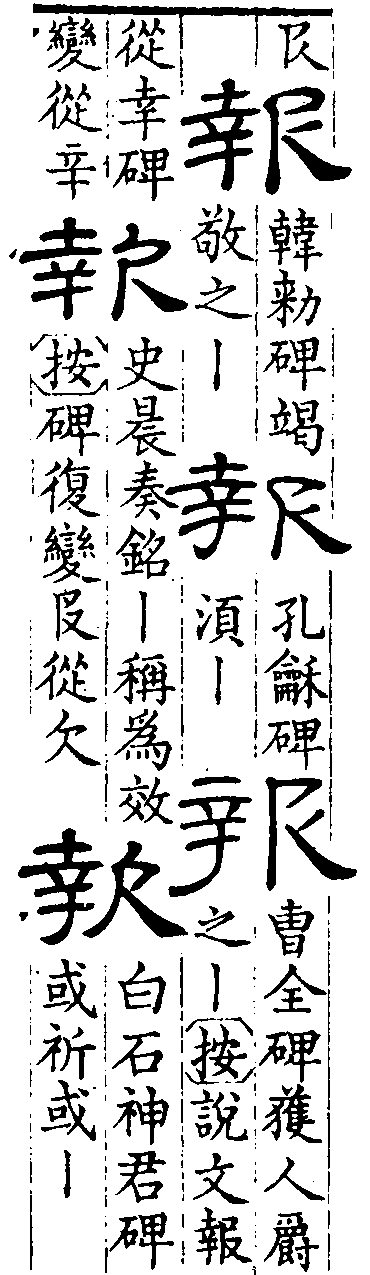 𠬝
報
韓勑碑竭
敬之丨
報
孔龢碑
湏丨
報
曹全碑獲人爵
之丨按說文報
從幸碑
變從辛
報
史晨奏銘丨稱為效
按碑復變𠬝從欠
報
白石神君碑
或祈或丨